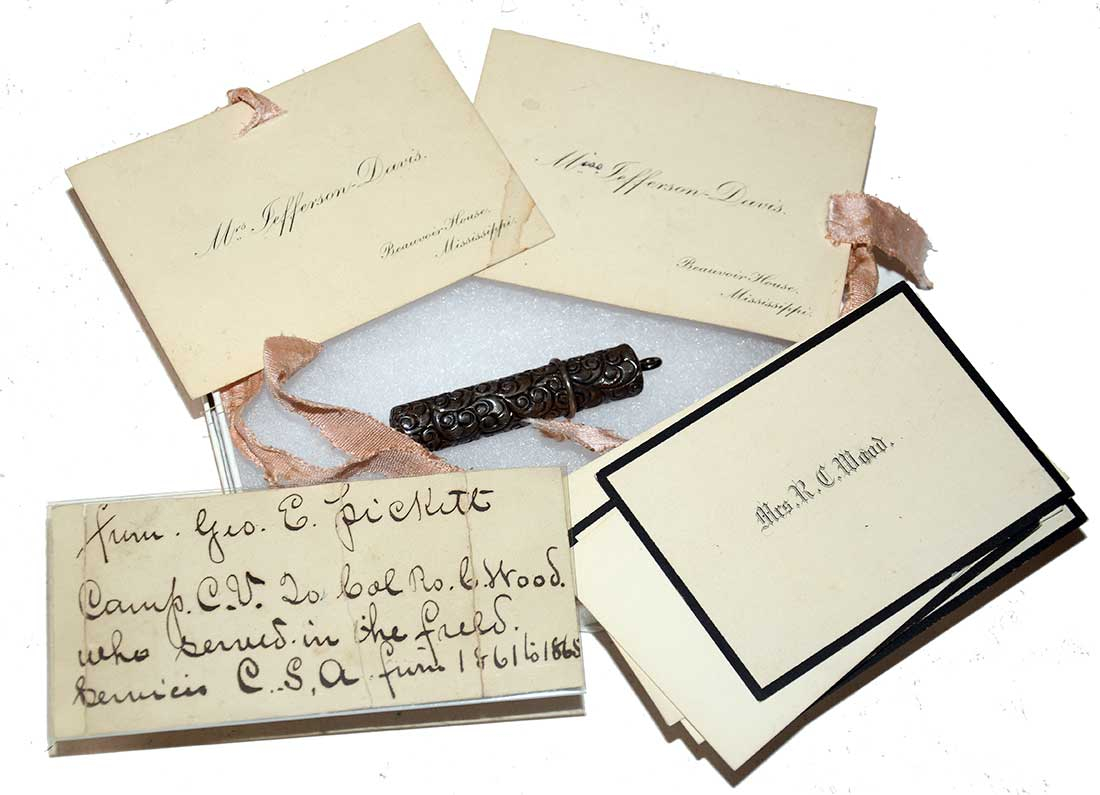 Mrs Jefferson-Davis.
Beauvoir House.
Mississippi.
Mrs Jefferson-Davis.
Beauvoir House.
Mississippi.
Mrs. R. C. Wood.
from. Geo. E. Pickett
Camp. C.V. To Col Ro. C. Wood.
who served. in the field.
Servicis C.S.A from 1861 to 1865